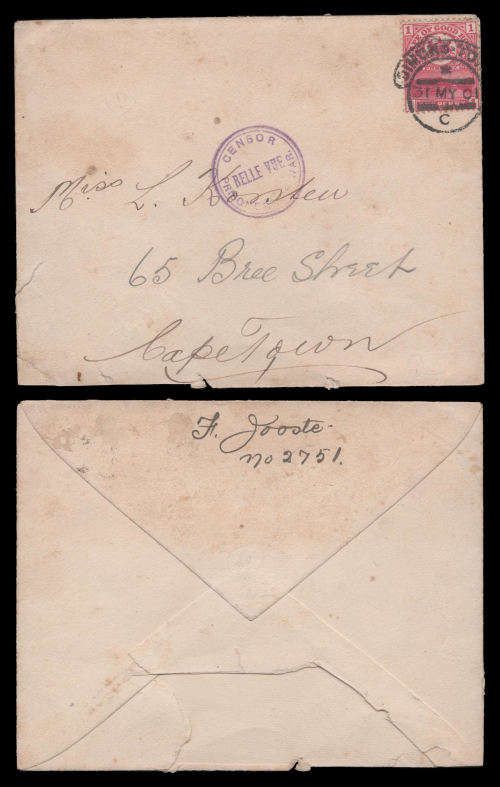 1 OF GOOD 1
SIMON'S TOWN
31 MY 01
C
CENSOR
BELLE VUE
Miss L. Korsten
65 Bree Street
Cape Town
F. Jooste.
No 2751.